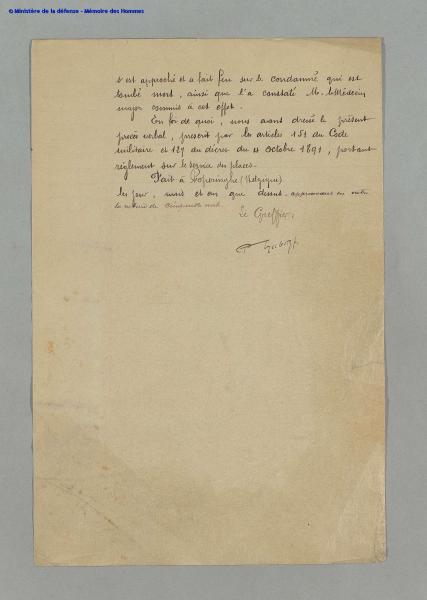 © Ministère de la défense - Mémoire des Hommes
s'est approché et a fait feu sur le condamné qui est
tombé mort, ainsi que l'a constaté M. le Médecin
major commis à cet effet.
En foi de quoi, nous avons dressé le présent
procès verbal, prescrit par les articles 151 du Code
militaire et 129 du décret du 4 octobre 1891, portant
règlement sur le service des places.
Fait à Poperinghe (Belgique)
les jour, mois et an que dessus. approuvons en outre
la rature de mot.
Le Greffier,